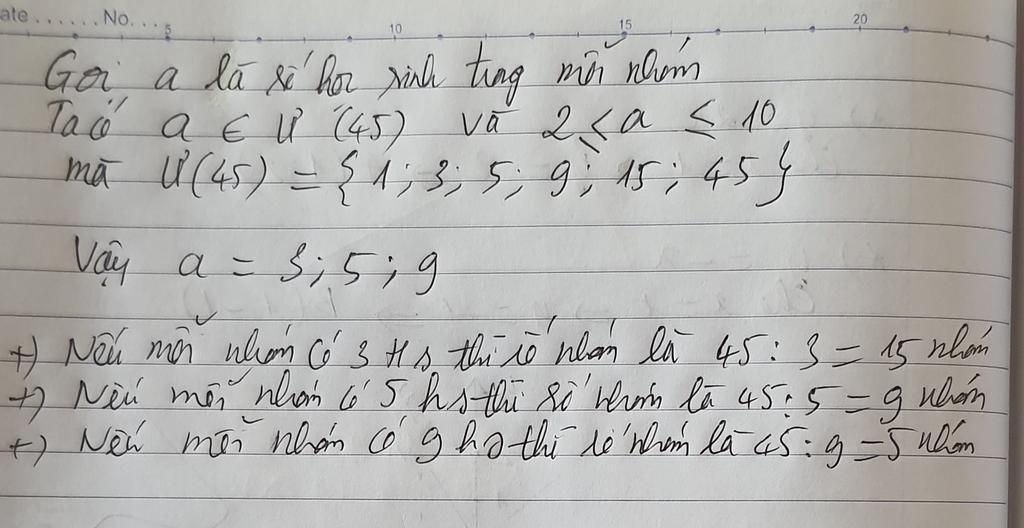 ate ...... No....
5 10 15 20
Gọi a là số học sinh trong mỗi nhóm
Ta có a ∈ Ư (45) và 2 ≤ a ≤ 10
mà Ư(45) = {1; 3; 5; 9; 15; 45}
Vậy a = 3; 5; 9
+) Nếu mỗi nhóm có 3 Hs thì số nhóm là 45 : 3 = 15 nhóm
+) Nếu mỗi nhóm có 5 hs thì số nhóm là 45 : 5 = 9 nhóm
+) Nếu mỗi nhóm có 9 hs thì số nhóm là 45 : 9 = 5 nhóm